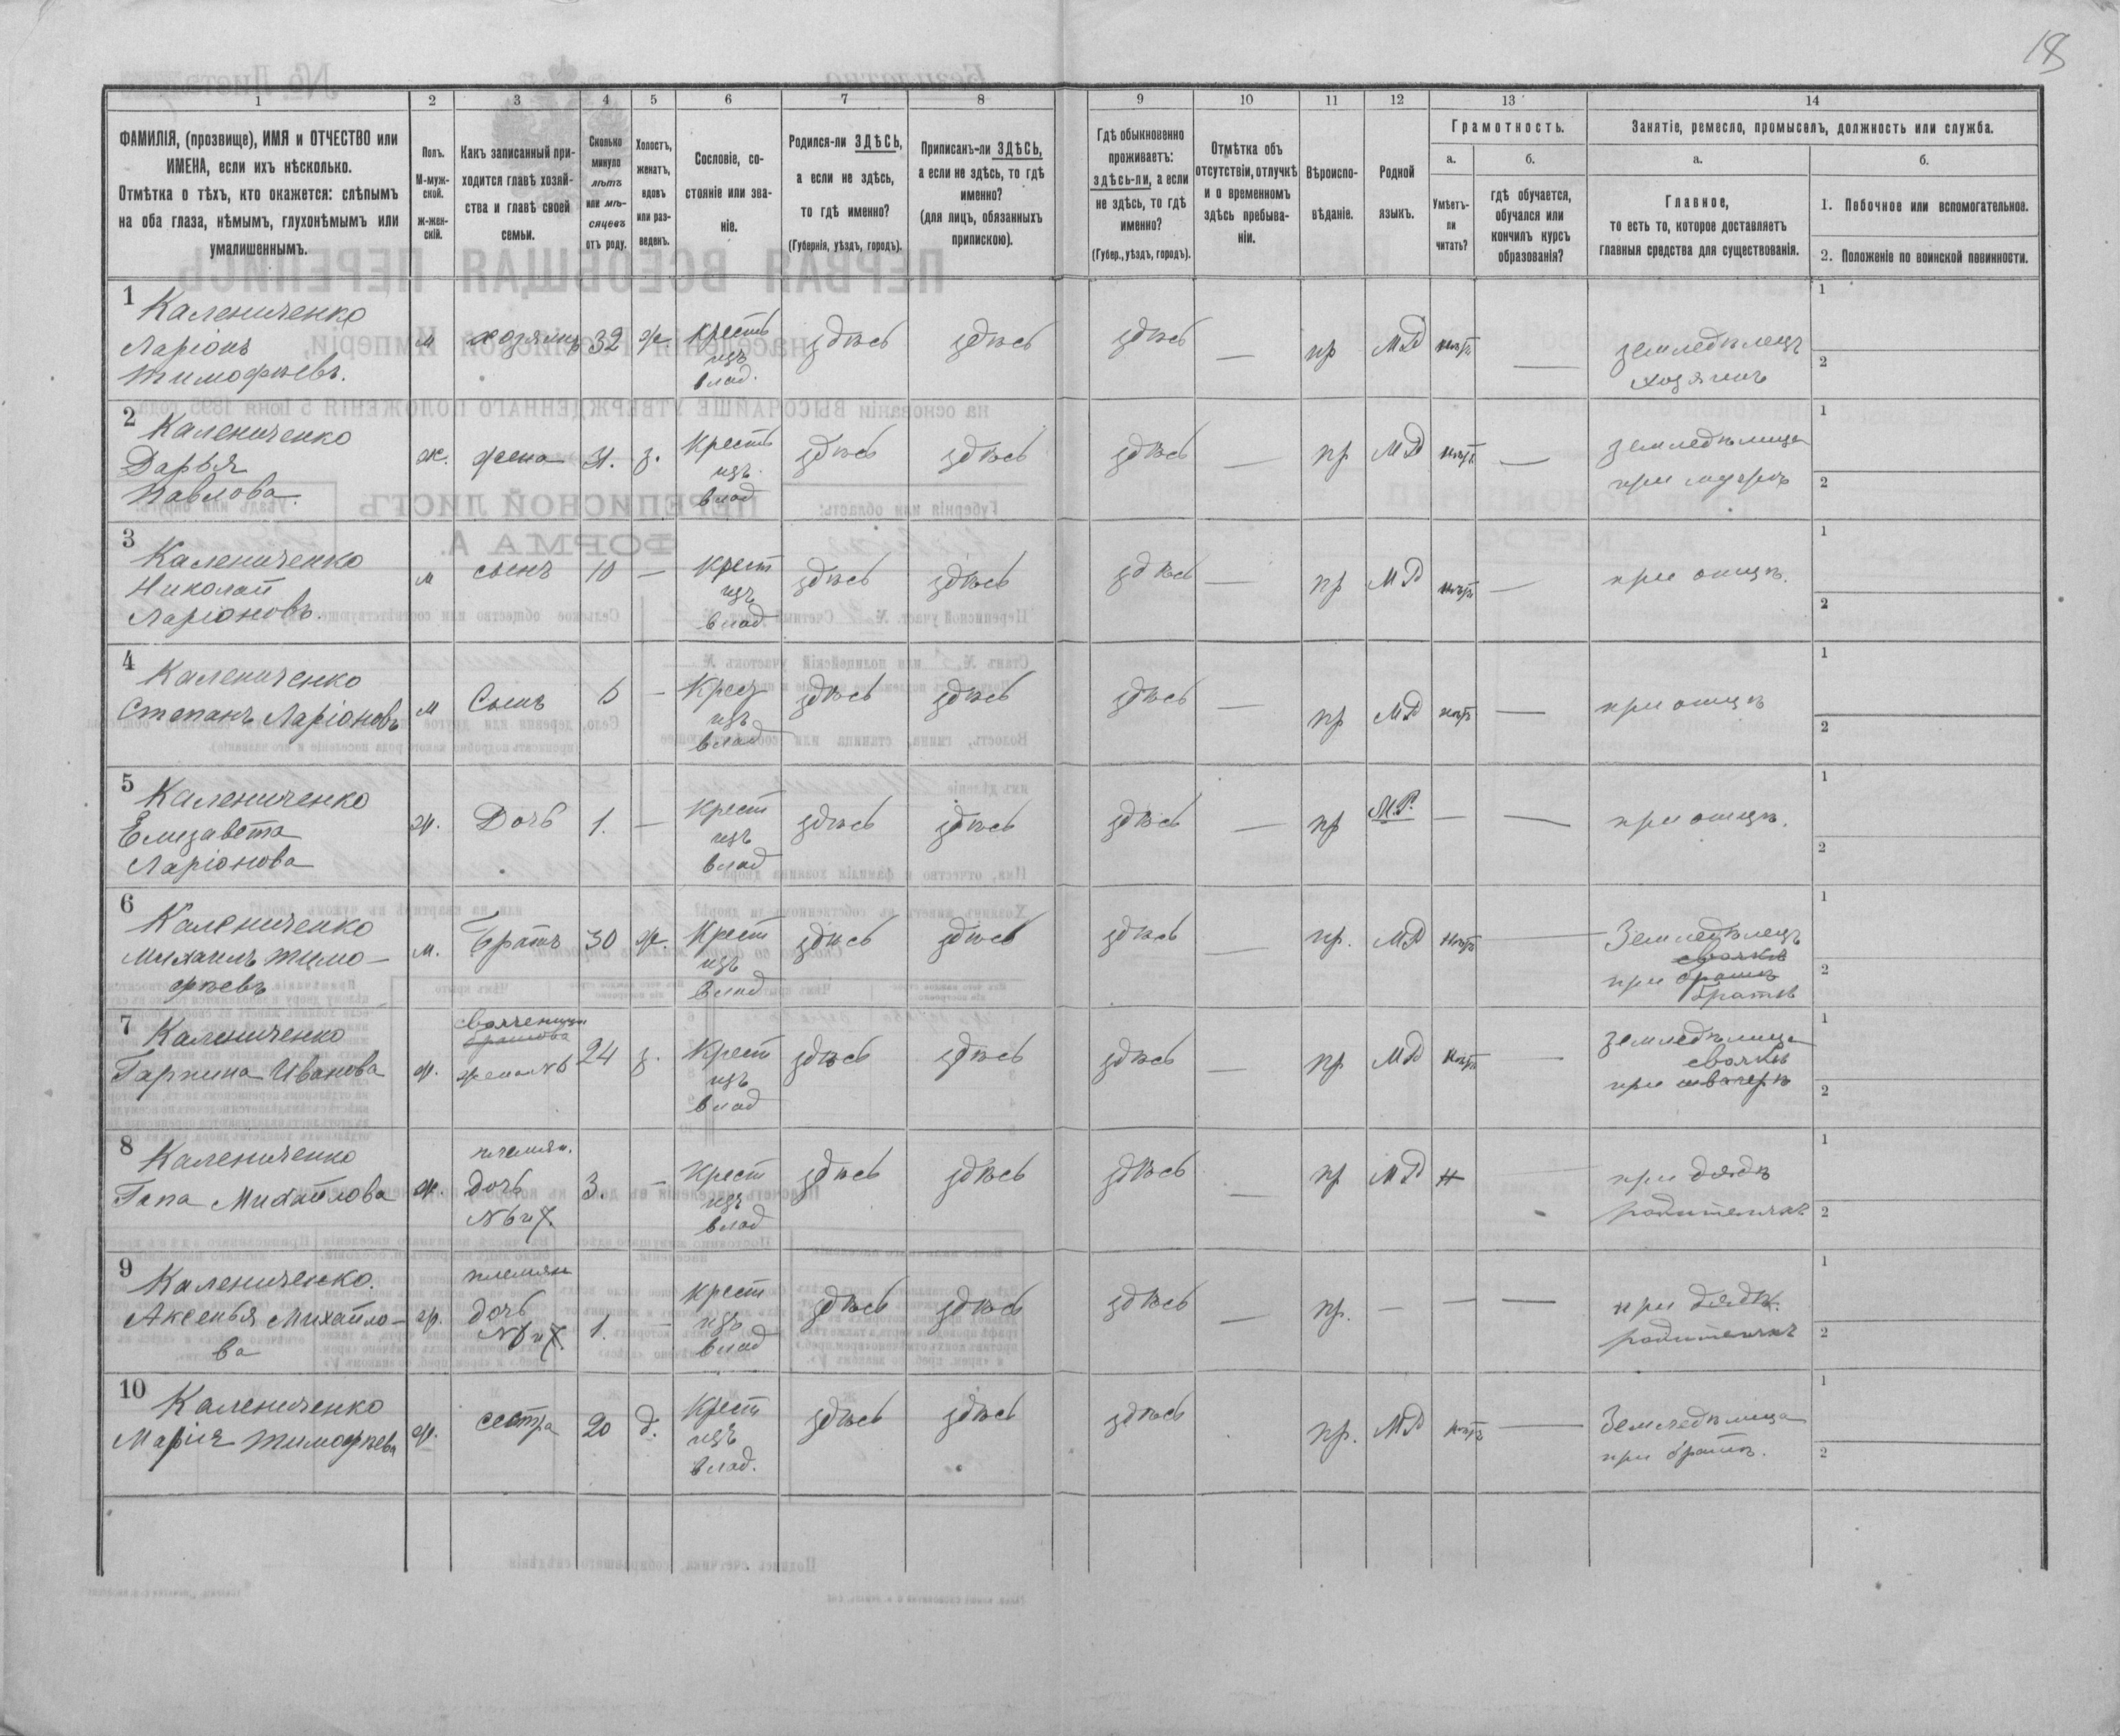 18
1 2 3 4 5 6 7 8 9 10 11 12 13 14
ФАМИЛІЯ, (прозвище), ИМЯ и ОТЧЕСТВО или
ИМЕНА, если ихъ нѣсколько.
Отмѣтка о тѣхъ, кто окажется: слѣпымъ
на оба глаза, нѣмымъ, глухонѣмымъ или
умалишеннымъ.
Полъ.
М-муж-
ской.
Ж-жен-
скій.
Какъ записанный при-
ходится главѣ хозяй-
ства и главѣ своей
семьи.
Сколько
минуло
лѣтъ
или мѣ-
сяцевъ
отъ роду.
Холостъ,
женатъ,
вдовъ
или раз-
веденъ.
Сословіе, со-
стояніе или зва-
ніе.
Родился-ли ЗДѢСЬ,
а если не здѣсь,
то гдѣ именно?
(Губернія, уѣздъ, городъ).
Приписанъ-ли ЗДѢСЬ,
а если не здѣсь, то гдѣ
именно?
(для лицъ, обязанныхъ
припискою).
Гдѣ обыкновенно
проживаетъ:
здѣсь-ли, а если
не здѣсь, то гдѣ
именно?
(Губер., уѣздъ, городъ).
Отмѣтка объ
отсутствіи, отлучкѣ
и о временномъ
здѣсь пребыва-
ніи.
Вѣроиспо-
вѣданіе.
Родной
языкъ.
Грамотность.
а.
Умѣетъ-
ли
читать?
б.
гдѣ обучается,
обучался или
кончилъ курсъ
образованія?
Занятіе, ремесло, промыселъ, должность или служба.
а.
Главное,
то есть то, которое доставляетъ
главныя средства для существованія.
б.
1. Побочное или вспомогательное.
2. Положеніе по воинской повинности.
1 Калениченко
Ларіонъ
Тимофѣевъ.
м хозяинъ 32 ж
крестъ
изъ
влад.
здѣсь здѣсь здѣсь — пр МР нѣтъ —
земледѣлецъ
хозяинъ
1
2
2 Калениченко
Дарья
Павлова.
ж. жена 31. з.
Крестъ
изъ
влад
здѣсь здѣсь здѣсь — пр МР нѣтъ —
земледѣлица
при мужѣ
1
2
3 Калениченко
Николай
Ларіоновъ.
м сынъ 10 —
Крест
изъ
влад
здѣсь здѣсь здѣсь — пр МР нѣтъ —
при отцѣ.
1
2
4 Калениченко
Степанъ Ларіоновъ
м Сынъ 6 —
Крест
изъ
влад
здѣсь здѣсь здѣсь — пр МР нѣтъ —
при отцѣ
1
2
5 Калениченко
Елизавета
Ларіонова
ж. Дочь 1. —
Крест
изъ
влад
здѣсь здѣсь здѣсь — пр М.Р. — —
при отцѣ.
1
2
6 Калениченко
Михаилъ Тимо-
фѣевъ
м. Братъ 30 ж.
Крест
изъ
влад
здѣсь здѣсь здѣсь — пр. МР нѣтъ —
Земледѣлецъ
при братѣ
1
2
7 Калениченко
Гарпина Иванова
ж.
жена №6
24 з.
Крест
изъ
влад
здѣсь здѣсь здѣсь — пр МР нѣтъ —
земледѣлица
при
1
2
8 Калениченко
Гапа Михайлова
ж.
племян.
дочь
№6 и 7.
3. —
Крест
изъ
влад
здѣсь здѣсь здѣсь — пр МР н
при дядѣ
родителяхъ
1
2
9 Калениченко.
Аксенья Михайло-
ва
ж.
племян
дочь
№6 и 7
1. —
Крест
изъ
влад
здѣсь здѣсь здѣсь — пр. — — —
при дядѣ.
родителяхъ
1
2
10 Калениченко
Марія Тимофѣева
ж. сестра 20 д.
Крест
изъ
влад.
здѣсь здѣсь здѣсь пр. МР нѣтъ —
Земледѣлица
при братѣ.
1
2